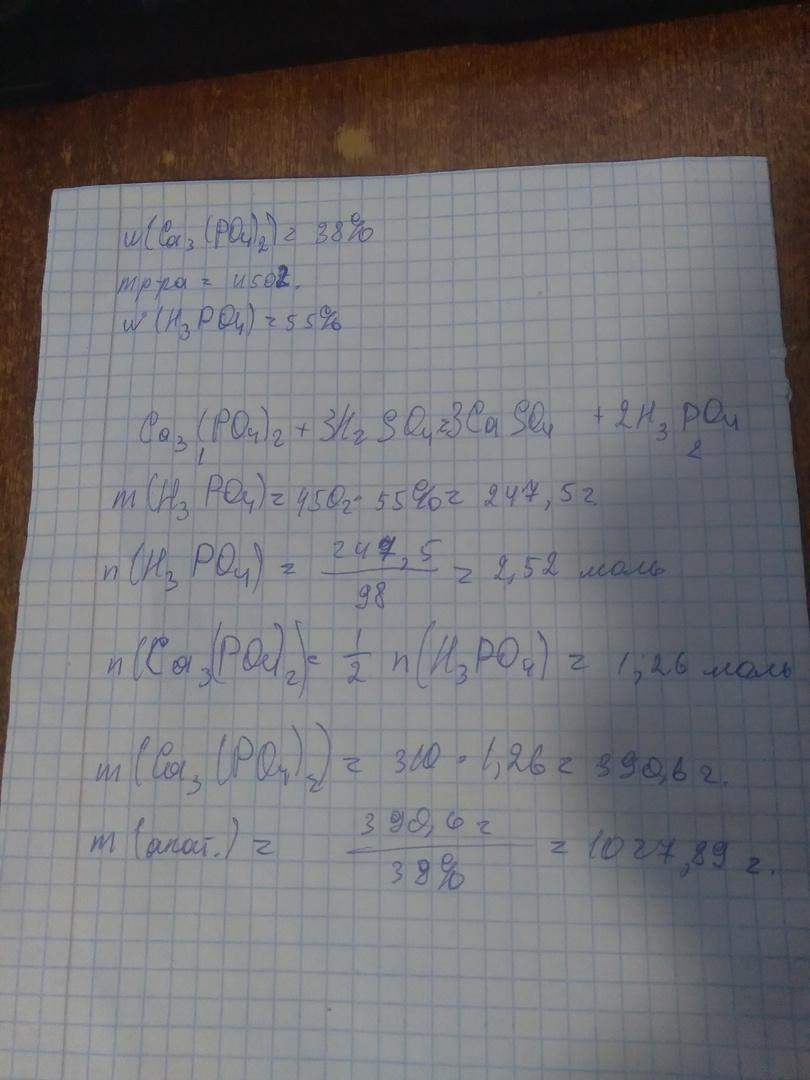 w(Ca₃(PO₄)₂) = 38%
mр-ра = 450г.
w(H₃PO₄) = 55%
Ca₃(PO₄)₂ + 3H₂SO₄ = 3CaSO₄ + 2H₃PO₄
1 2
m(H₃PO₄) = 450г · 55% = 247,5г
n(H₃PO₄) = 247,5 / 98 = 2,52 моль
n(Ca₃(PO₄)₂) = 1/2 n(H₃PO₄) = 1,26 моль
m(Ca₃(PO₄)₂) = 310 · 1,26 = 390,6 г.
m(апат.) = 390,6 г / 38% = 1027,89 г.